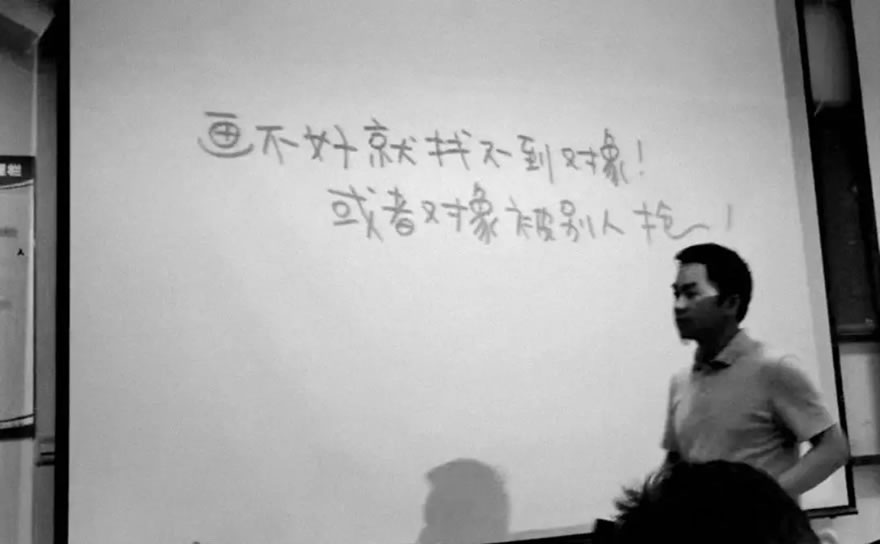 画不好就找不到对象!
或者对象被别人抢!
栏